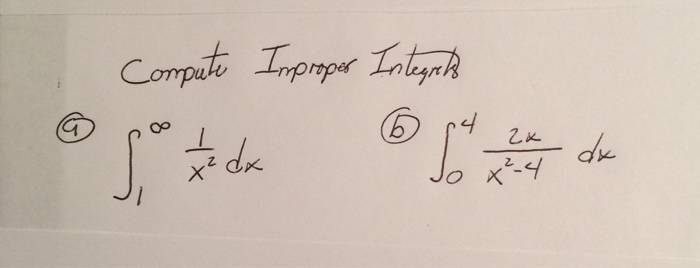 Compute Improper Integrals
(a) ∫₁^∞ 1/x² dx (b) ∫₀⁴ 2x/(x²-4) dx